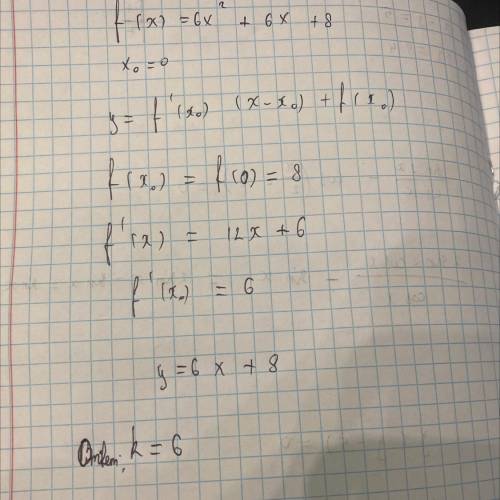 f(x) = 6x² + 6x + 8
x₀ = 0
y = f'(x₀) (x - x₀) + f(x₀)
f(x₀) = f(0) = 8
f'(x) = 12x + 6
f'(x₀) = 6
y = 6x + 8
Ответ: k = 6